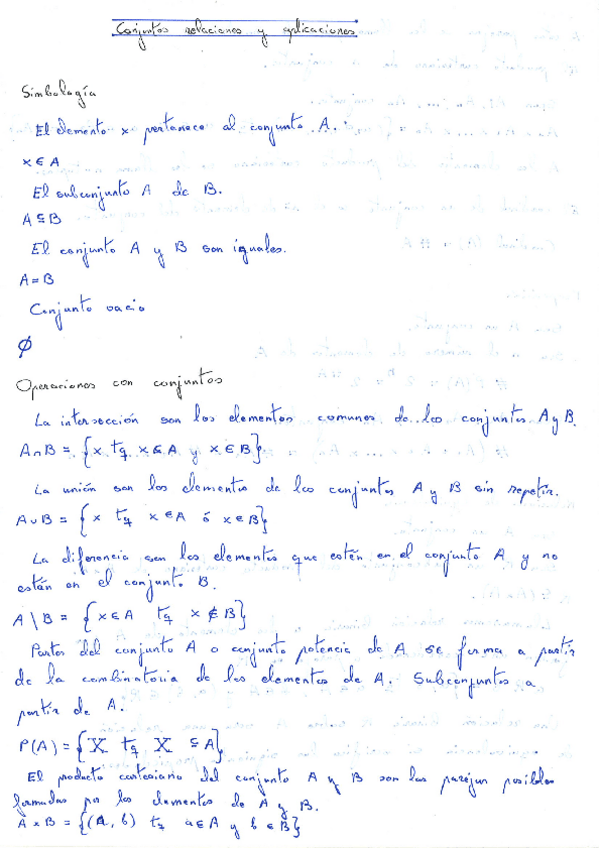 Conjuntos relaciones y aplicaciones
Simbología
El elemento x pertenece al conjunto A.
x ∈ A
El subconjunto A de B.
A ⊆ B
El conjunto A y B son iguales.
A = B
Conjunto vacio
Ø
Operaciones con conjuntos
La intersección son los elementos comunes de los conjuntos A y B.
A ∩ B = {x tq x ∈ A y x ∈ B}
La unión son los elementos de los conjuntos A y B sin repetir.
A ∪ B = {x tq x ∈ A ó x ∈ B}
La diferencia son los elementos que estén en el conjunto A y no
están en el conjunto B.
A \ B = {x ∈ A tq x ∉ B}
Partes del conjunto A o conjunto potencia de A se forma a partir
de la combinatoria de los elementos de A. Subconjuntos a
partir de A.
P(A) = {X tq X ⊆ A}
El producto cartesiano del conjunto A y B son las parejas posibles
formadas por los elementos de A y B.
A × B = {(a, b) tq a ∈ A y b ∈ B}